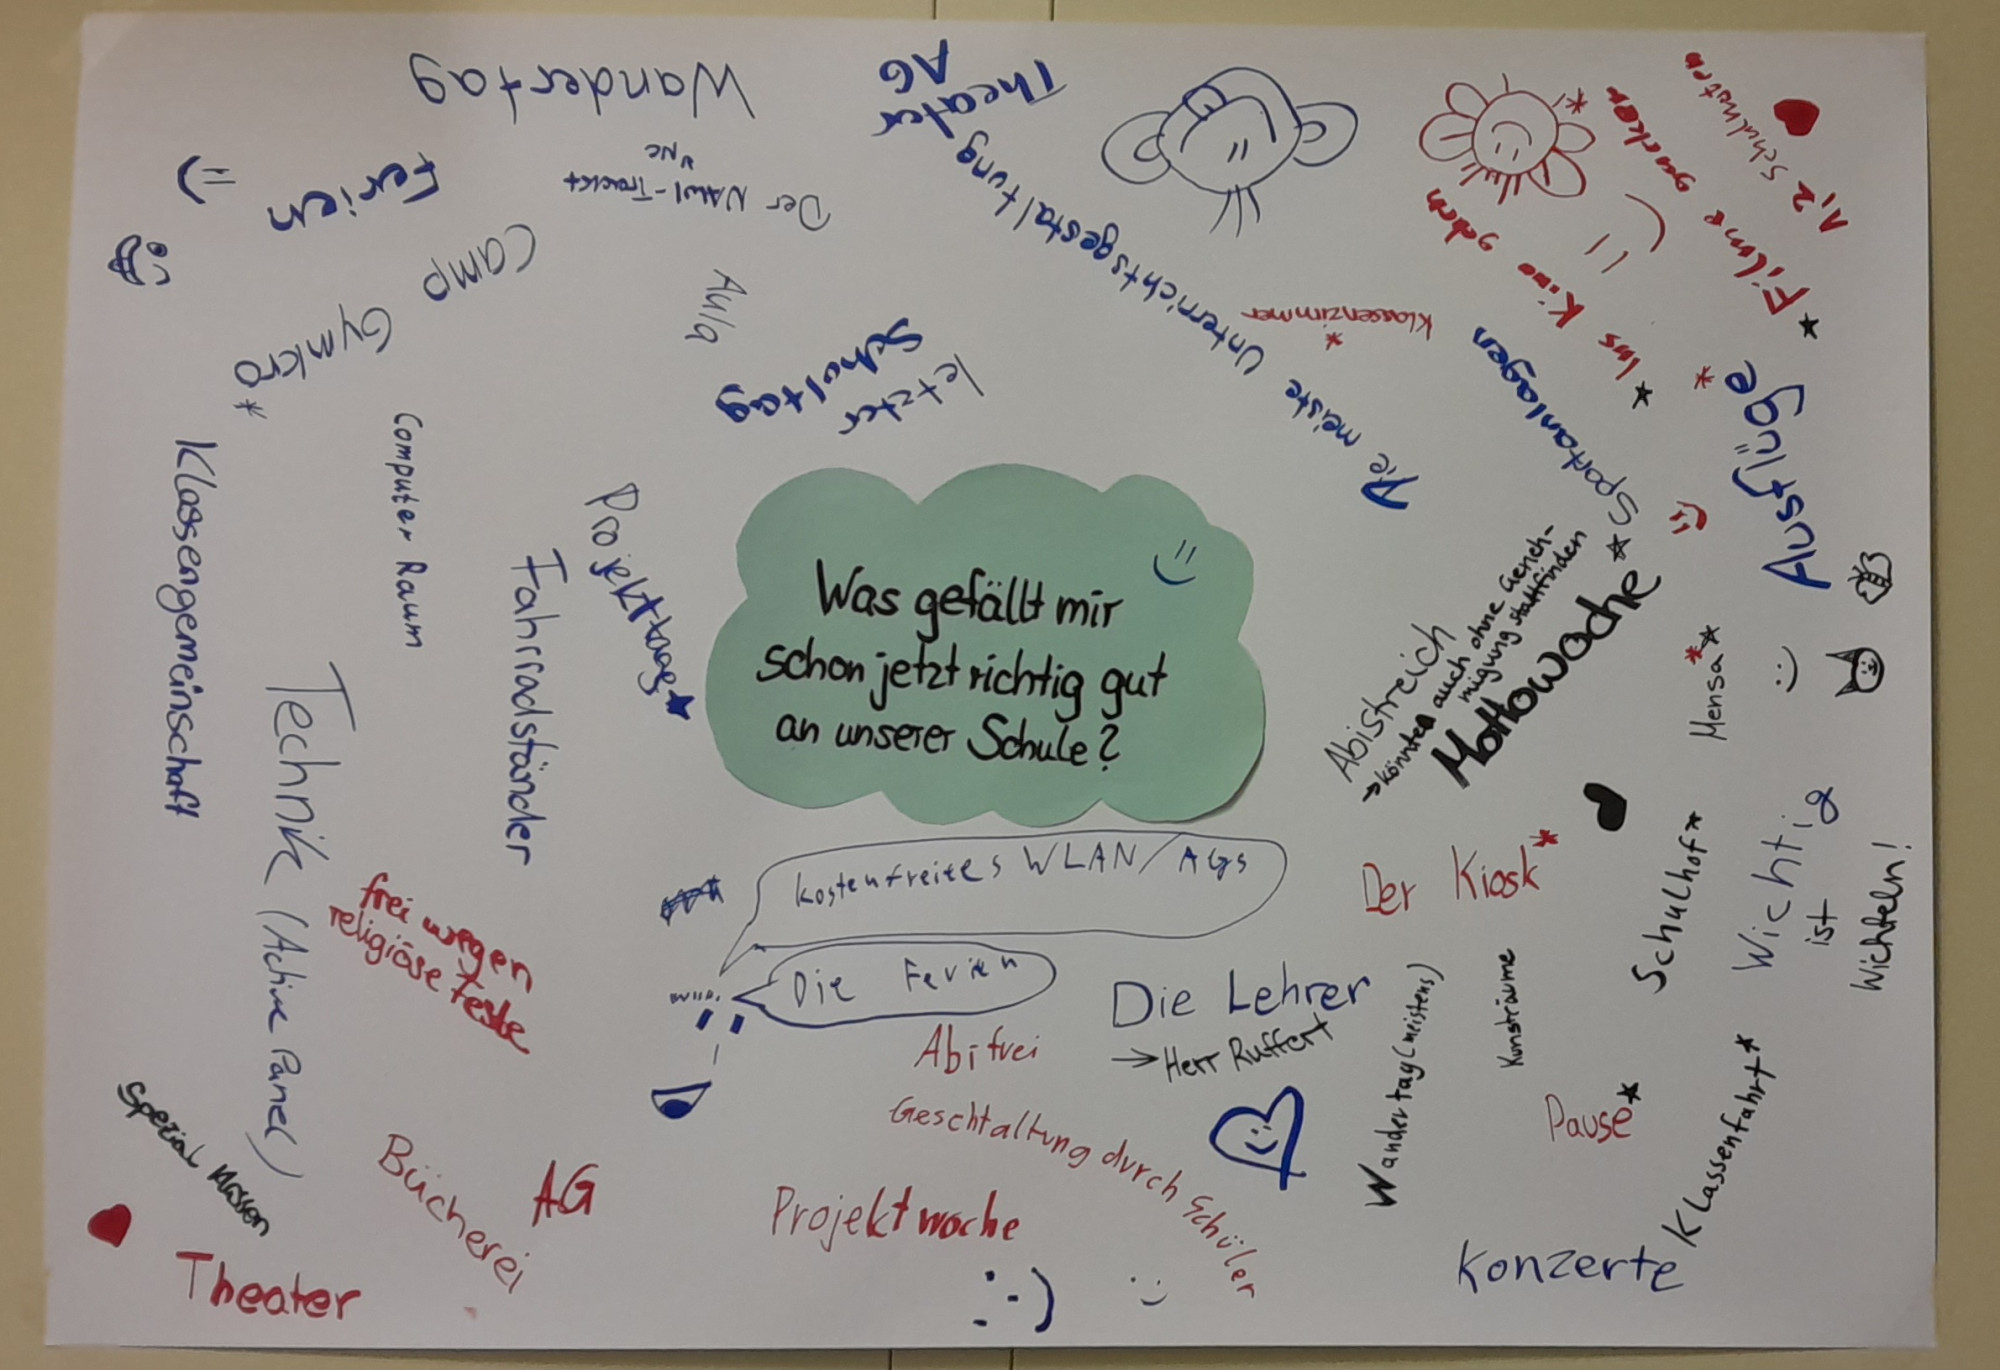 Was gefällt mir
schon jetzt richtig gut
an unserer Schule?
Wandertag
Theater
AG
Ferien
Der NAWI-Trackt
Camp
Gymkro*
Aula
letzter
Schultag
Die meiste Unterrichtsgestaltung
Klassenzimmer
*
1,2 Schuluhren
* Filme gucken *
* Ins Kino gehen
* Sportanlagen
Ausflüge *
Abistreich
→ könnte auch ohne Geneh-
migung stattfinden
Mottowoche
Mensa***
Klassengemeinschaft
Computer Raum
Fahrradständer
Projekttage*
Technik (Active Panel)
frei wegen
religiöse feste
kostenfreites WLAN/AGs
Die Ferien
Der Kiosk*
Schulhof*
Wichtig
ist
Wichteln!
Die Lehrer
→ Herr Ruffert
Abi frei
Geschtaltung durch Schüler
Wandertag (meistens)
Kunsträume
Pause*
Klassenfahrt*
Spezial Klassen
Bücherei
AG
Projektwoche
Theater
Konzerte